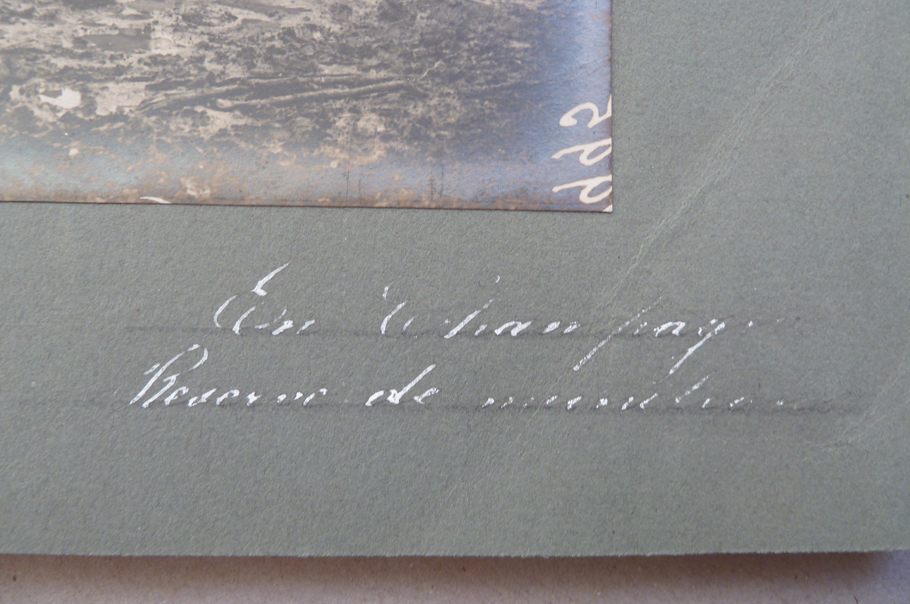 En Champagne
Reserve de munitions